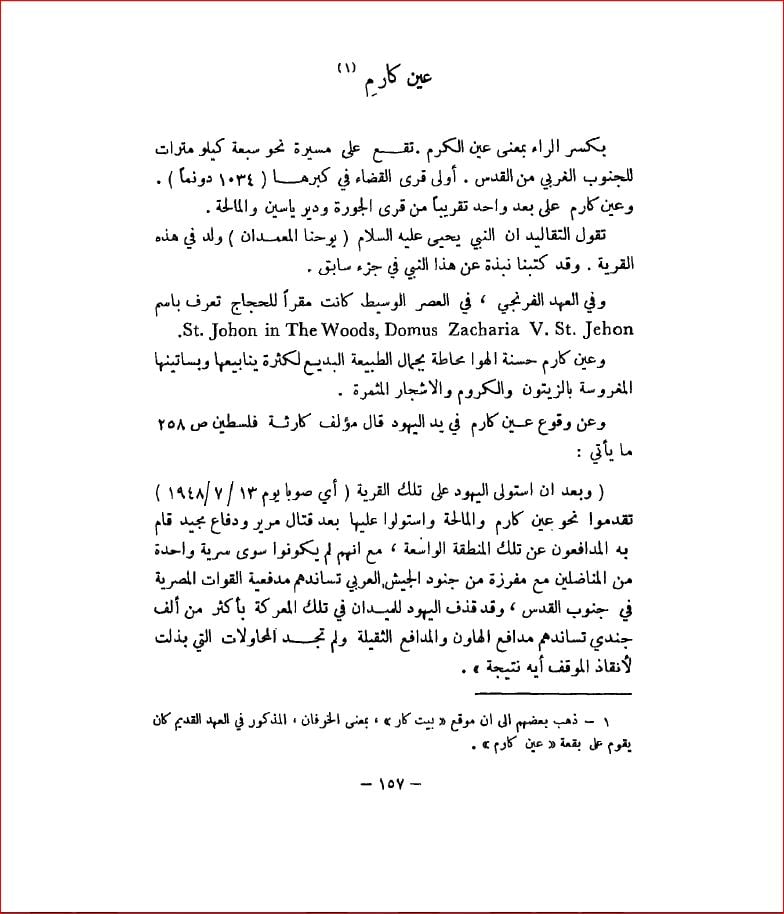 عين كارِم (١)
بكسر الراء بمعنى عين الكرم . تقـــع على مسيرة نحو سبعة كيلو مترات
للجنوب الغربي من القدس . أولى قرى القضاء في كبرهـــا ( ١٠٣٤ دونماً ) .
وعين كارم على بعد واحد تقريباً من قرى الجورة ودير ياسين والمالحة .
تقول التقاليد ان النبي يحيى عليه السلام ( يوحنا المعمدان ) ولد في هذه
القرية . وقد كتبنا نبذة عن هذا النبي في جزء سابق .
وفي العهد الفرنجي ، في العصر الوسيط كانت مقراً للحجاج تعرف باسم
St. Johon in The Woods, Domus Zacharia V. St. Jehon.
وعين كارم حسنة الهوا محاطة بجمال الطبيعة البديع لكثرة ينابيعها وبساتينها
المغروسة بالزيتون والكروم والاشجار المثمرة .
وعن وقوع عــين كارم في يد اليهود قال مؤلف كارثــة فلسطين ص ٢٥٨
ما يأتي :
( وبعد ان استولى اليهود على تلك القرية ( أي صوبا يوم ١٣ / ٧ /١٩٤٨ )
تقدموا نحو عين كارم والمالحة واستولوا عليها بعد قتال مرير ودفاع مجيد قام
به المدافعون عن تلك المنطقة الواسعة ، مع انهم لم يكونوا سوى سرية واحدة
من المناضلين مع مفرزة من جنود الجيش العربي تساندهم مدفعية القوات المصرية
في جنوب القدس ، وقد قذف اليهود للميدان في تلك المعركة بأكثر من ألف
جندي تساندهم مدافع الهاون والمدافع الثقيلة ولم تجــد المحاولات التي بذلت
لأنقاذ الموقف أيه نتيجة » .
١ – ذهب بعضهم الى ان موقع « بيت كار » ، بمعنى الخرفان ، المذكور في العهد القديم كان
يقوم على بقعة « عين كارم » .
– ١٥٧ –